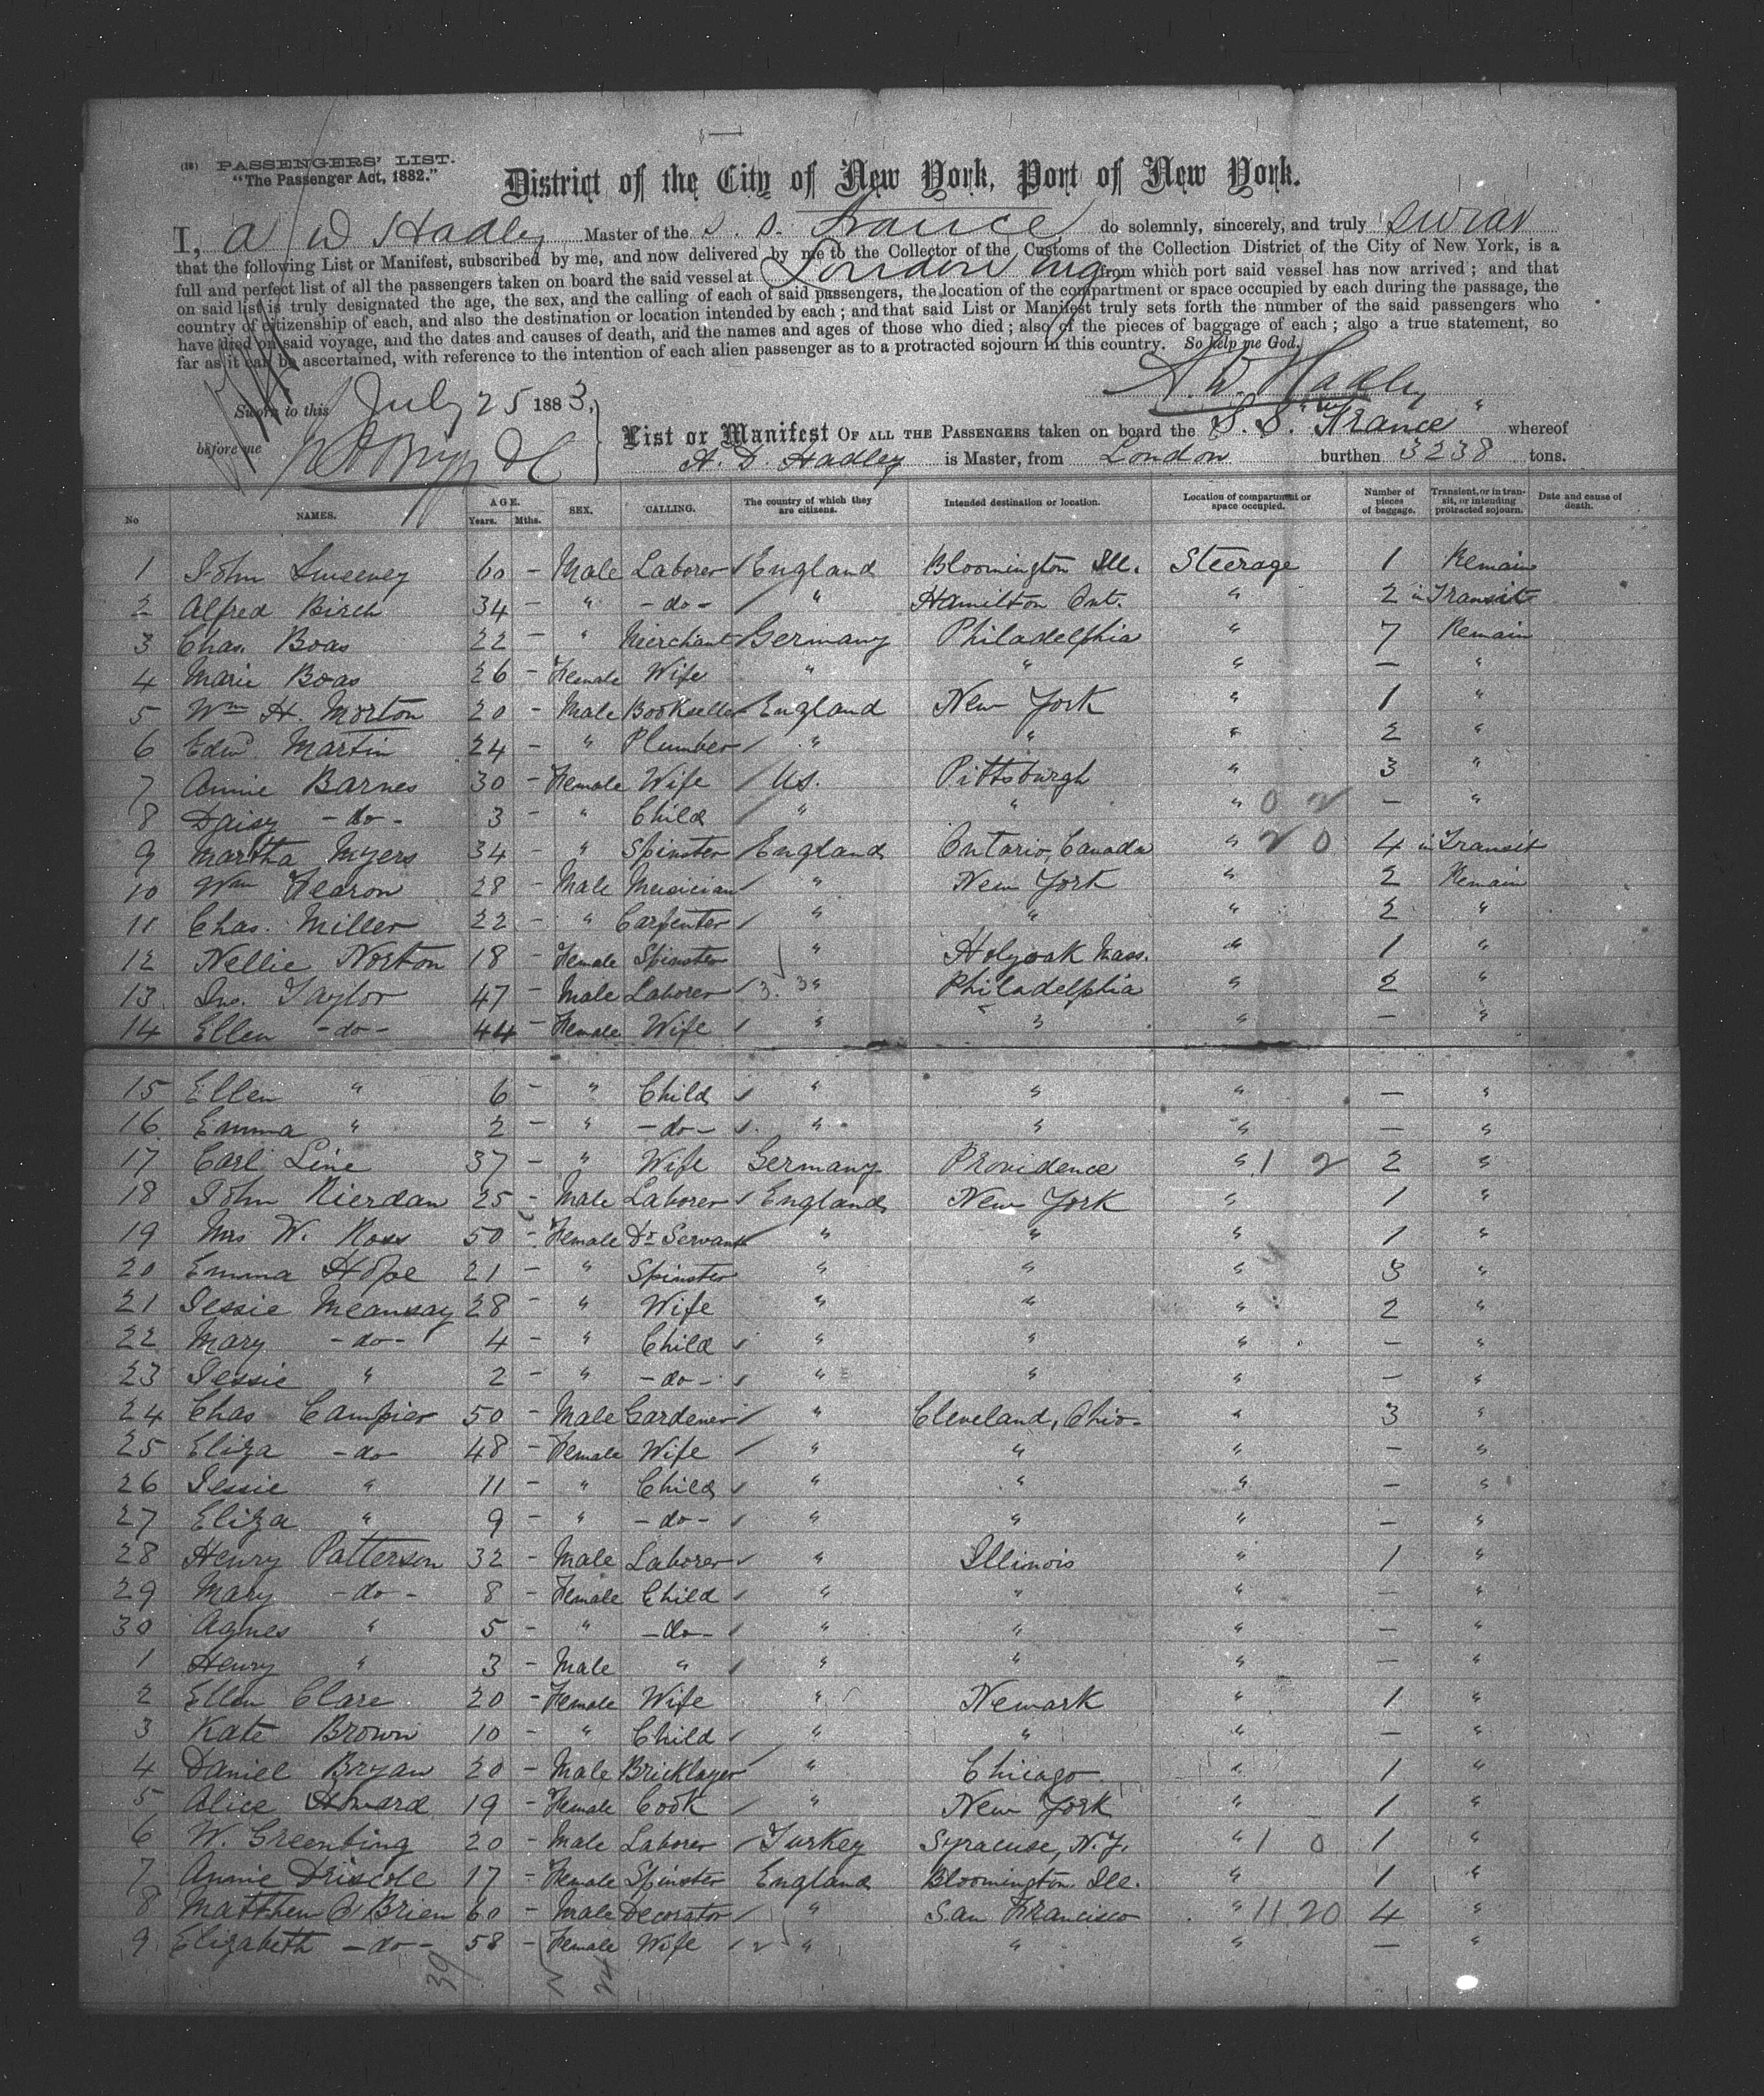 (18) PASSENGERS' LIST.
"The Passenger Act, 1882."
District of the City of New York, Port of New York.
I, A W Hadley Master of the S. S. France do solemnly, sincerely, and truly swear
that the following List or Manifest, subscribed by me, and now delivered by me to the Collector of the Customs of the Collection District of the City of New York, is a
full and perfect list of all the passengers taken on board the said vessel at London Eng from which port said vessel has now arrived; and that
on said list is truly designated the age, the sex, and the calling of each of said passengers, the location of the compartment or space occupied by each during the passage, the
country of citizenship of each, and also the destination or location intended by each; and that said List or Manifest truly sets forth the number of the said passengers who
have died on said voyage, and the dates and causes of death, and the names and ages of those who died; also of the pieces of baggage of each; also a true statement, so
far as it can be ascertained, with reference to the intention of each alien passenger as to a protracted sojourn in this country. So help me God.
A. W. Hadley
Sworn to this July 25 1883,
before me
List or Manifest OF ALL THE PASSENGERS taken on board the S. S. "France" whereof
A. D. Hadley is Master, from London burthen 3238 tons.
No NAMES. AGE. Years. Mths. SEX. CALLING. The country of which they are citizens. Intended destination or location. Location of compartment or space occupied. Number of pieces of baggage. Transient, or in transit, or intending protracted sojourn. Date and cause of death.
1 John Sweeney 60 - Male Laborer England Bloomington Ill. Steerage 1 Remain
2 Alfred Birch 34 - " -do- " Hamilton Ont. " 2 in Transit
3 Chas. Boas 22 - " Merchant Germany Philadelphia " 7 Remain
4 Marie Boas 26 - Female Wife " " " — "
5 Wm H. Morton 20 - Male Bookseller England New York " 1 "
6 Edwd Martin 24 - " Plumber " " " 2 "
7 Annie Barnes 30 - Female Wife U.S. Pittsburgh " 3 "
8 Daisy -do- 3 - " Child " " " 0 2 — "
9 Martha Myers 34 - " Spinster England Ontario, Canada " 2 0 4 in Transit
10 Wm Fearon 28 - Male Musician " New York " 2 Remain
11 Chas. Miller 22 - " Carpenter " " " 2 "
12 Nellie Norton 18 - Female Spinster " Holyoak Mass. " 1 "
13 Jno. Taylor 47 - Male Laborer 3. 3 " Philadelphia " 2 "
14 Ellen -do- 44 - Female Wife " " " — "
15 Ellen " 6 - " Child " " " — "
16 Emma " 2 - " -do- " " " — "
17 Carl Line 37 - " Wife Germany Providence " 1 2 2 "
18 John Rierdan 25 - Male Laborer England New York " 1 "
19 Mrs W. Ross 50 - Female Dr Servant " " " 1 "
20 Emma Hope 21 - " Spinster " " " 3 "
21 Jessie Meansay 28 - " Wife " " " 2 "
22 Mary -do- 4 - " Child " " " — "
23 Jessie " 2 - " -do- " " " — "
24 Chas Campier 50 - Male Gardener " Cleveland, Ohio " 3 "
25 Eliza -do- 48 - Female Wife " " " — "
26 Jessie " 11 - " Child " " " — "
27 Eliza " 9 - " -do- " " " — "
28 Henry Patterson 32 - Male Laborer " Illinois " 1 "
29 Mary -do- 8 - Female Child " " " — "
30 Agnes " 5 - " -do- " " " — "
1 Henry " 3 - Male " " " " — "
2 Ellen Clare 20 - Female Wife " Newark " 1 "
3 Kate Brown 10 - " Child " " " — "
4 Daniel Bryan 20 - Male Bricklayer " Chicago " 1 "
5 Alice Howard 19 - Female Cook " New York " 1 "
6 W. Greenbing 20 - Male Laborer Turkey Syracuse, N.Y. " 1 0 1 "
7 Annie Driscole 17 - Female Spinster England Bloomington Ill. " 1 "
8 Matthew O'Brien 60 - Male Decorator " San Francisco " 11 20 4 "
9 Elizabeth -do- 58 - Female Wife 2 " " " — "
39